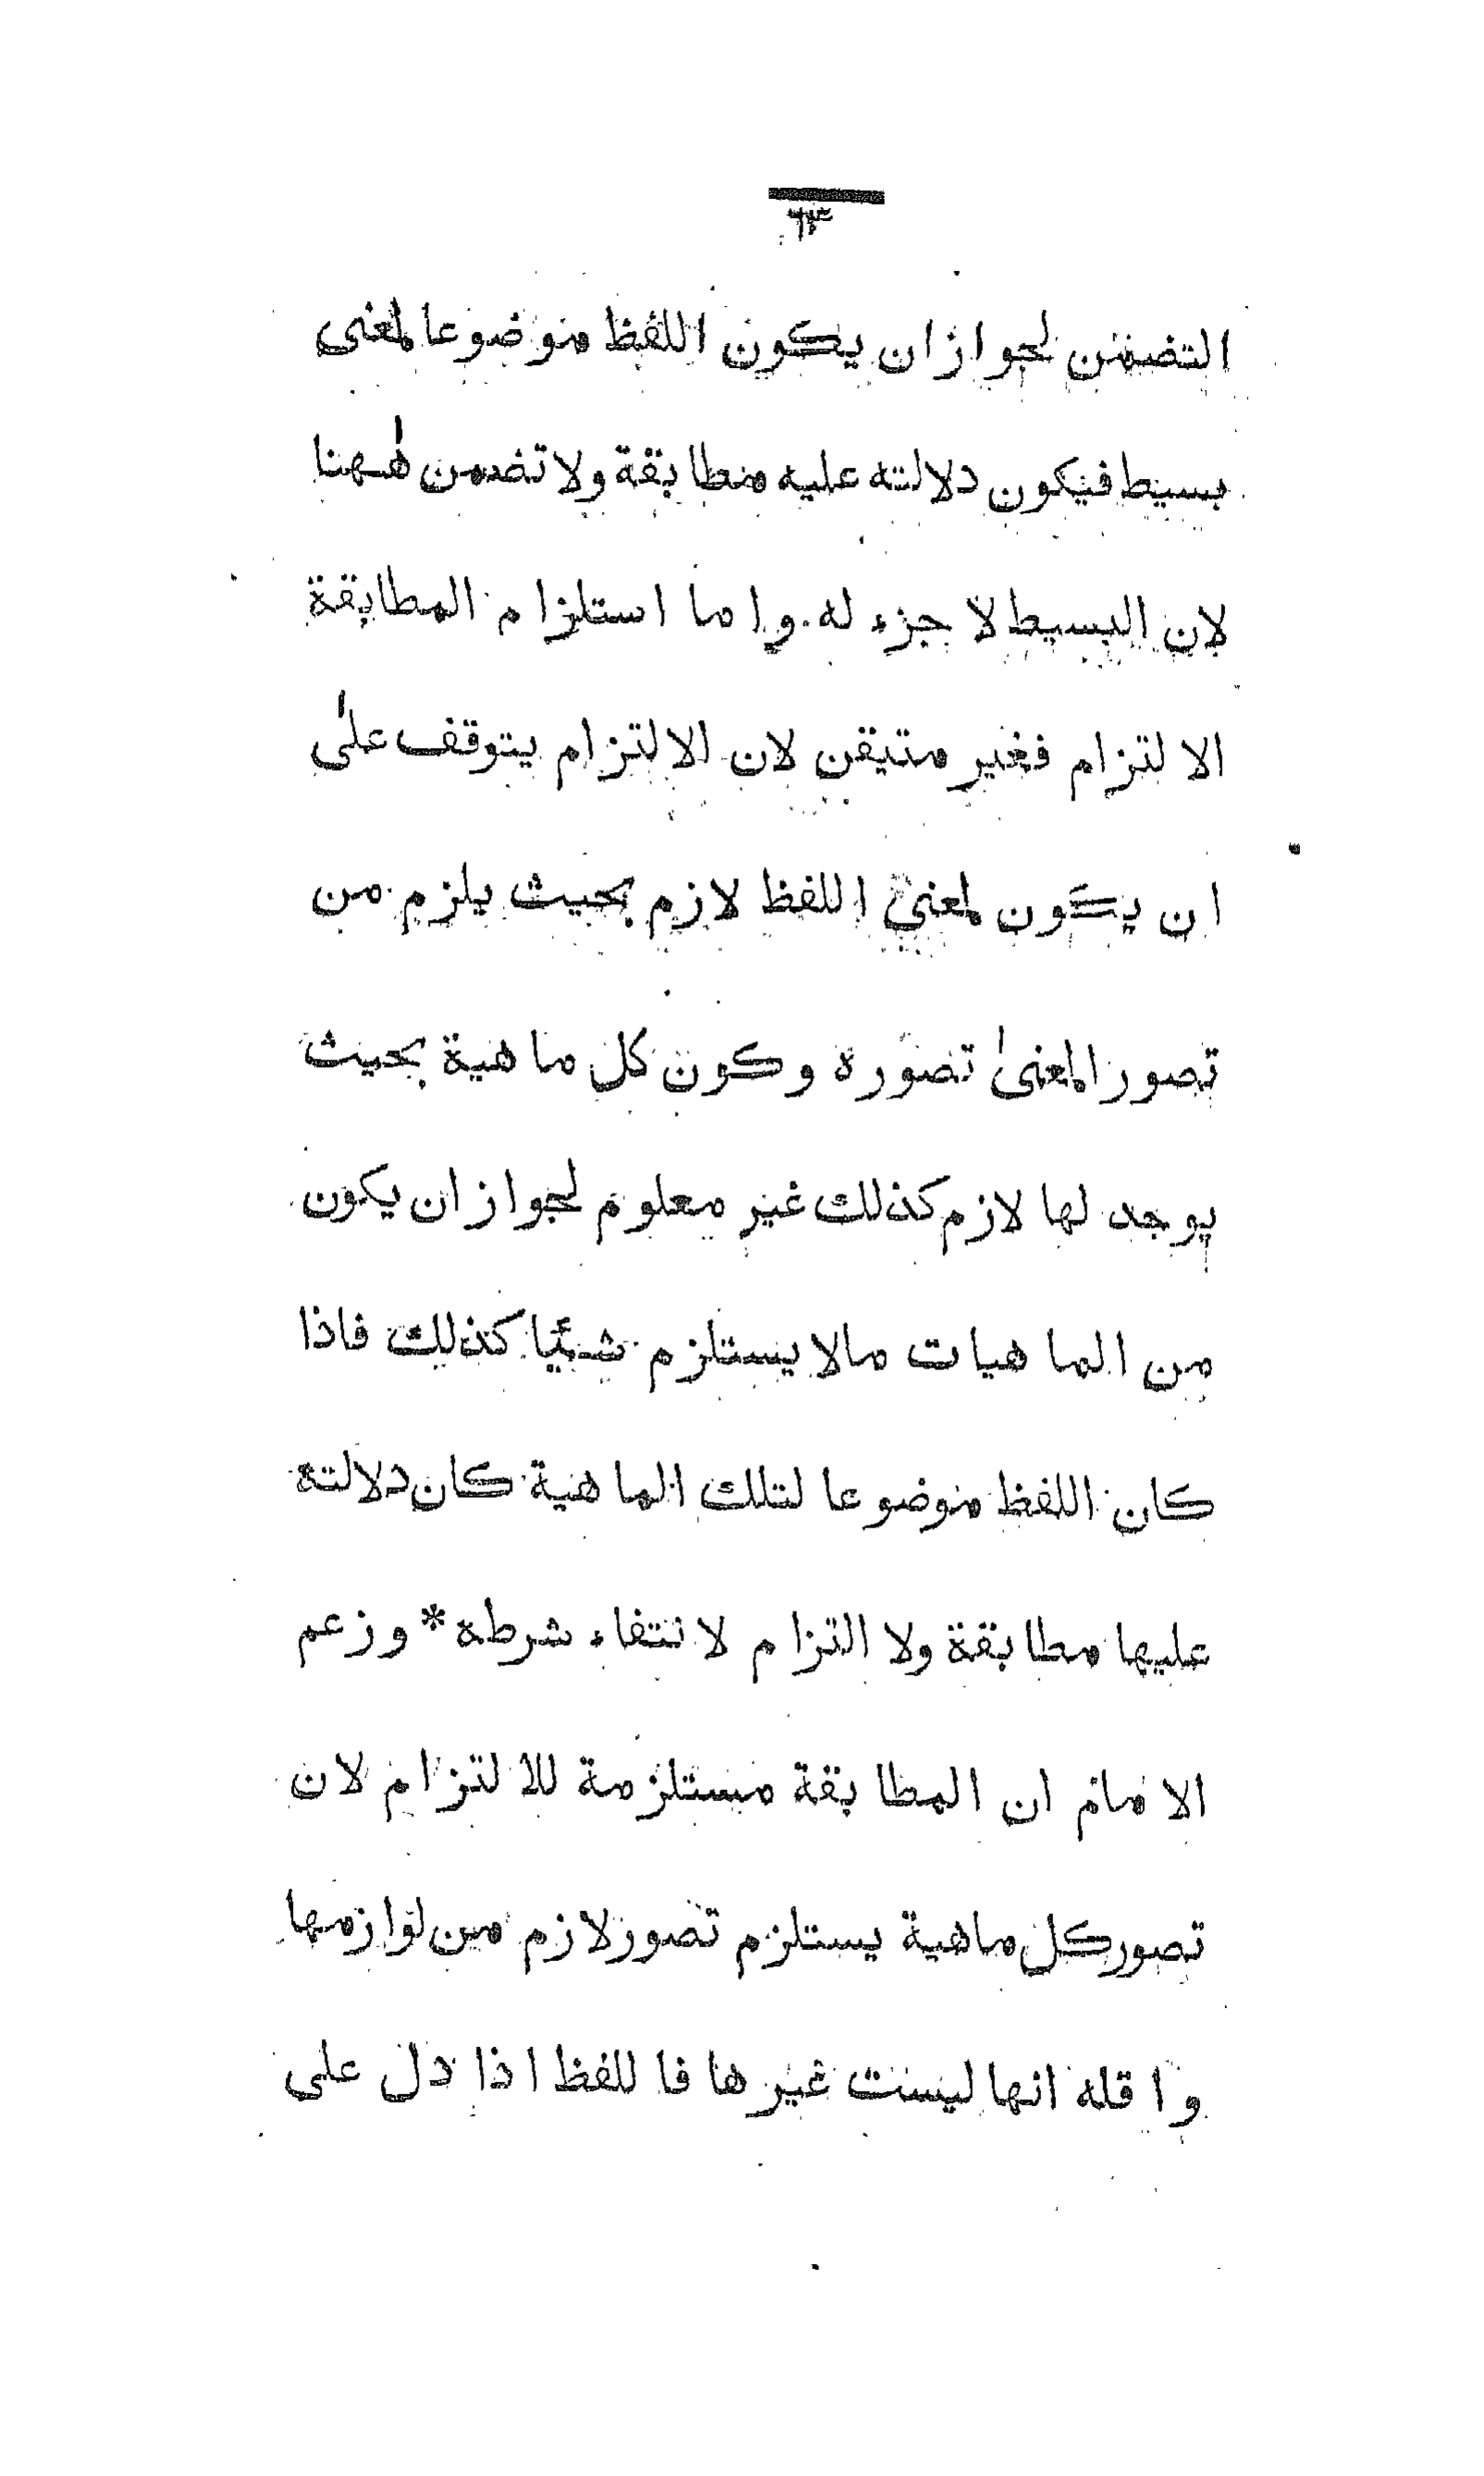 التضمن لجواز ان يكون اللفظ موضوعا لمعنى
بسيط فيكون دلالته عليه مطابقة ولا تضمن هٰهنا
لان البسيط لا جزء له واما استلزام المطابقة
الالتزام فغير متيقن لان الالتزام يتوقف علىٰ
ان يكون لمعنى اللفظ لازم بحيث يلزم من
تصور المعنىٰ تصوره وكون كل ماهية بحيث
يوجد لها لازم كذلك غير معلوم لجواز ان يكون
من الماهيات مالا يستلزم شيئا كذلك فاذا
كان اللفظ موضوعا لتلك الماهية كان دلالته
عليها مطابقة ولا التزام لانتفاء شرطه * وزعم
الامام ان المطابقة مستلزمة للالتزام لان
تصور كل ماهية يستلزم تصور لازم من لوازمها
واقله انها ليست غيرها فاللفظ اذا دل على